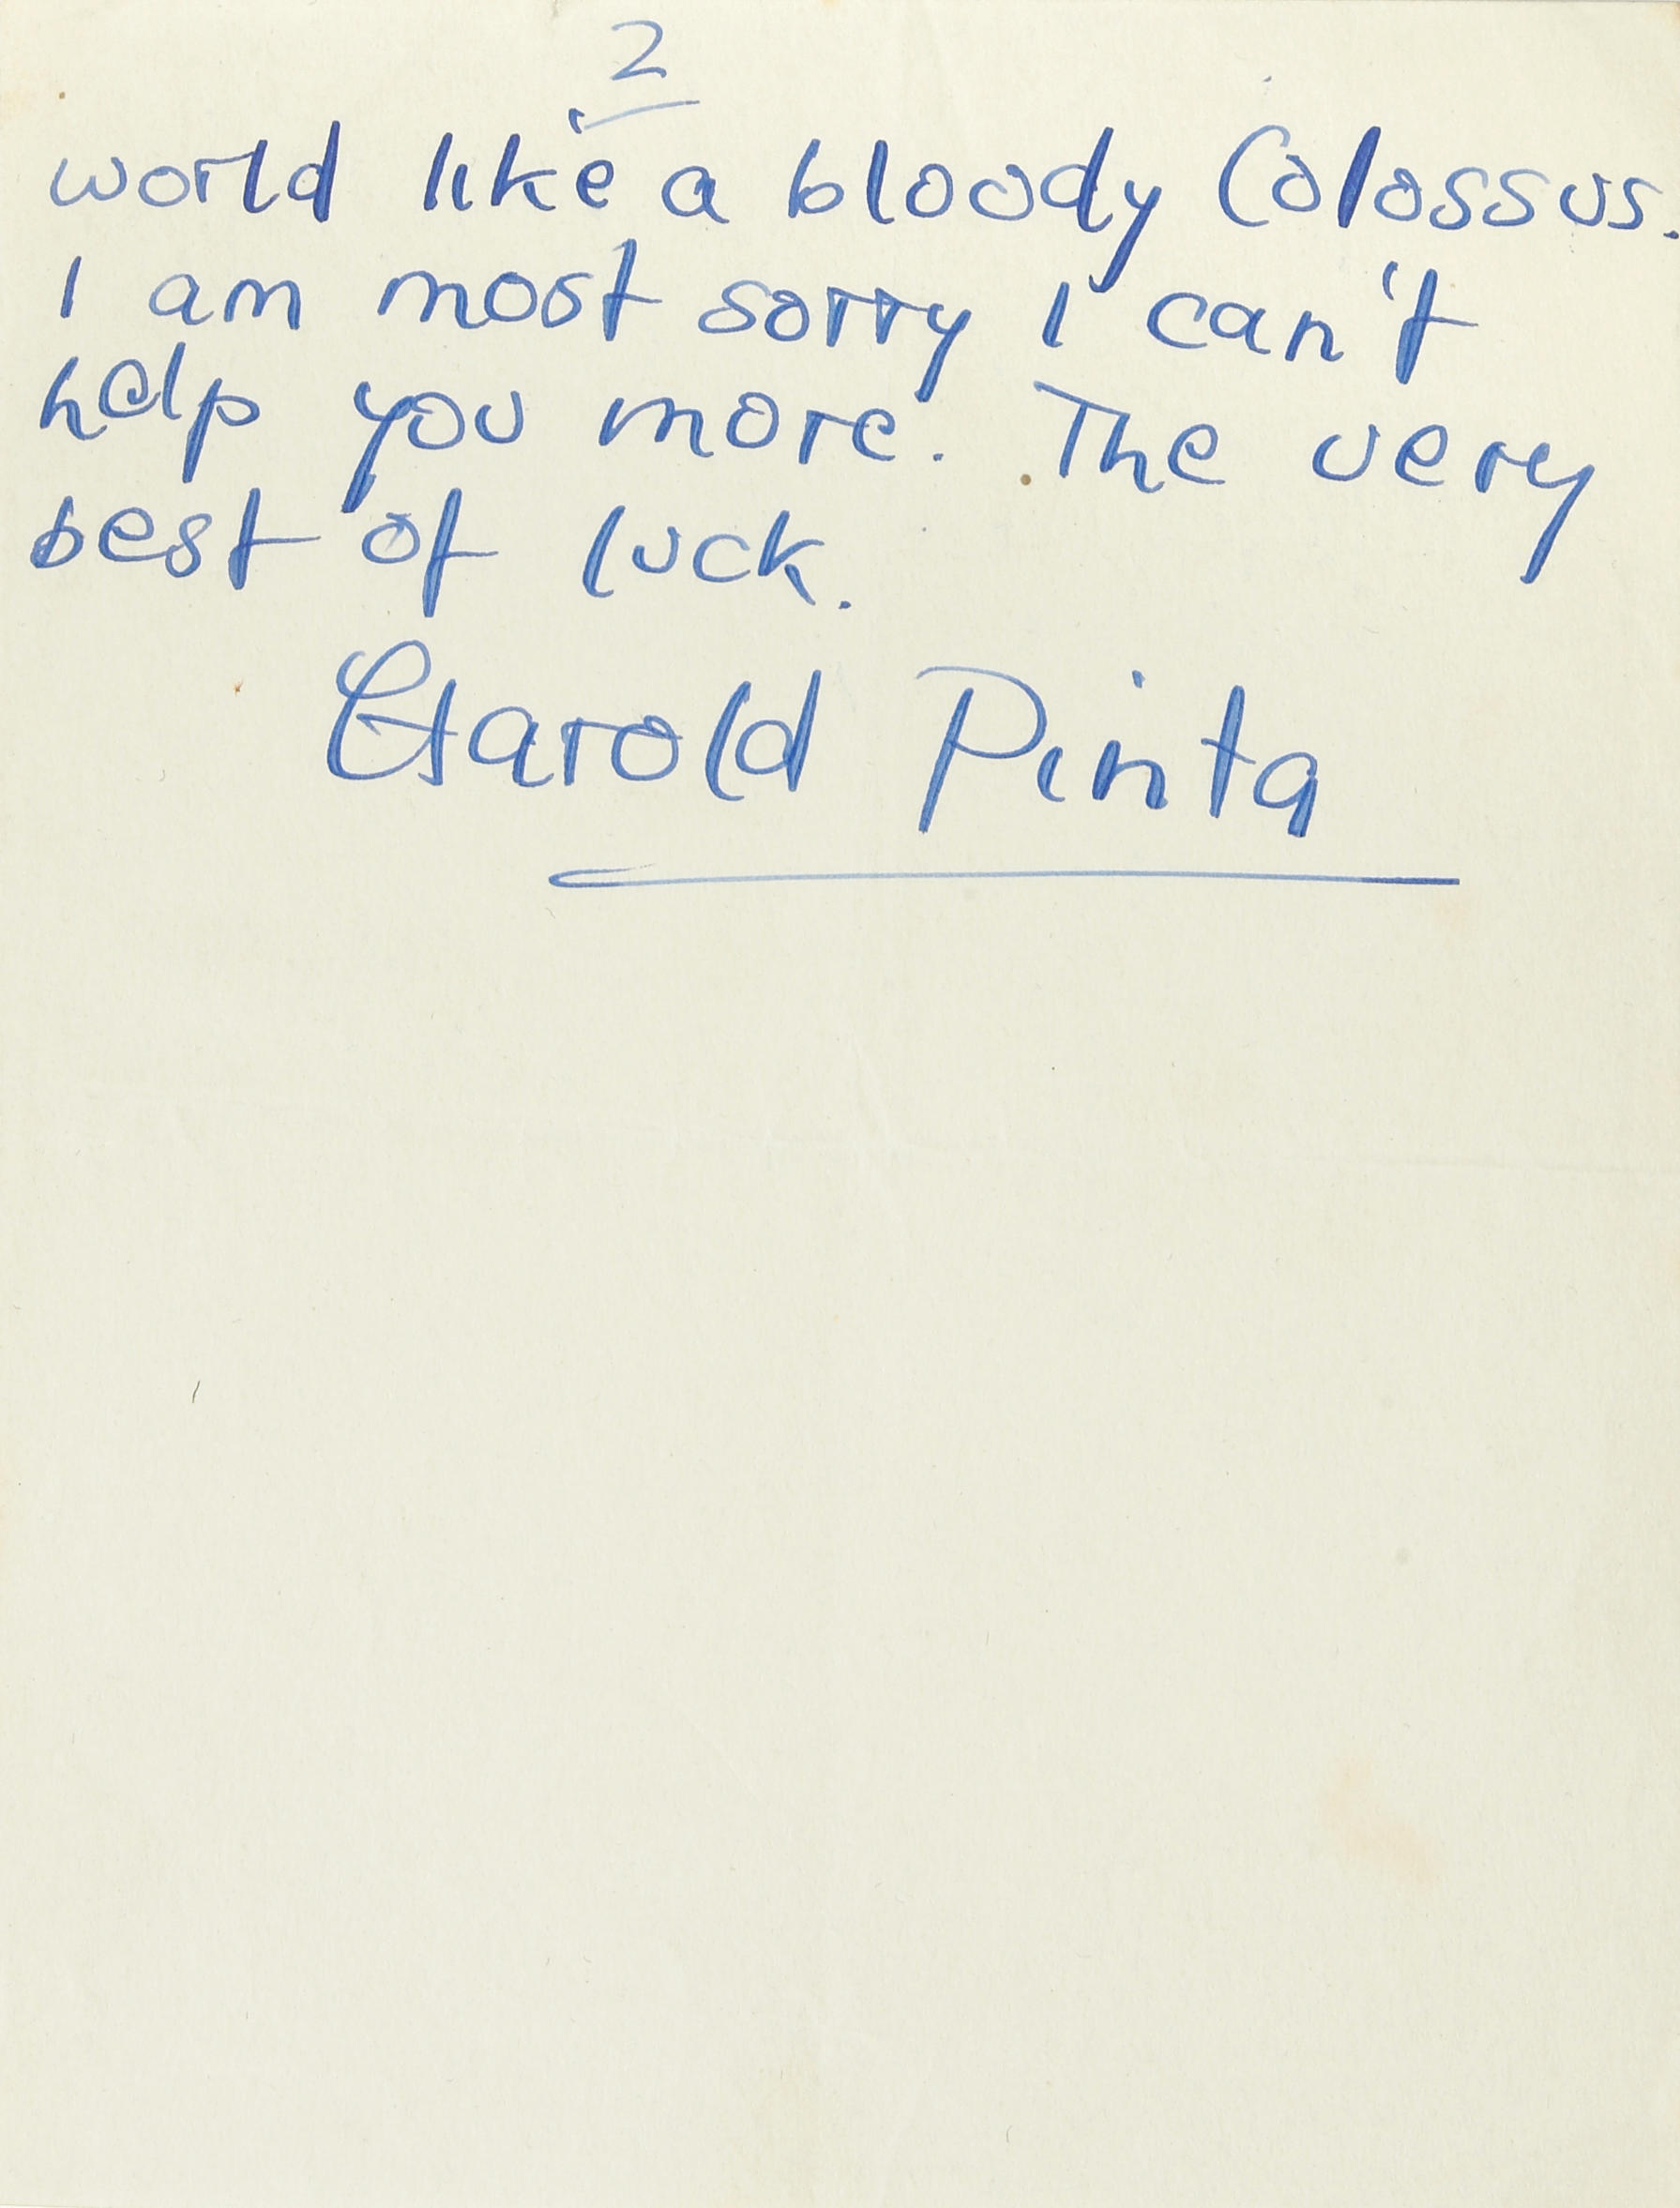 2
world like a bloody Colossus.
I am most sorry I can't
help you more. The very
best of luck.
Harold Pinta